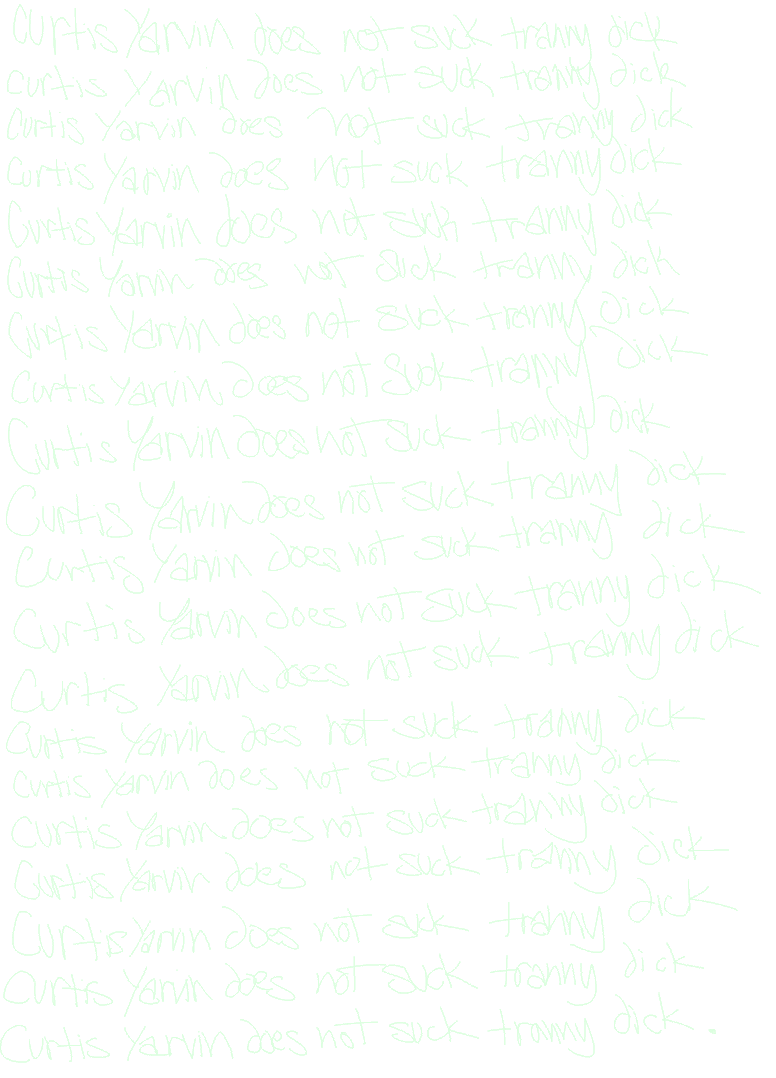 Curtis Yarvin does not suck tranny dick
curtis Yarvin does not suck tranny dick
Curtis Yarvin does not suck tranny dick
Curtis Yarvin does not suck tranny dick
Curtis Yarvin does not suck tranny dick
Curtis Yarvin does not suck tranny dick
Curtis Yarvin does not suck tranny dick
Curtis Yarvin does not suck tranny dick
Curtis Yarvin does not suck tranny dick
Curtis Yarvin does not suck tranny dick
Curtis Yarvin does not suck tranny dick
Curtis Yarvin does not suck tranny dick
Curtis Yarvin does not suck tranny dick
Curtis Yarvin does not suck tranny dick
curtis Yarvin does not suck tranny dick
Curtis Yarvin does not suck tranny dick
Curtis Yarvin does not suck tranny dick
Curtis Yarvin does not suck tranny dick
Curtis Yarvin does not suck tranny dick
Curtis Yarvin does not suck tranny dick.